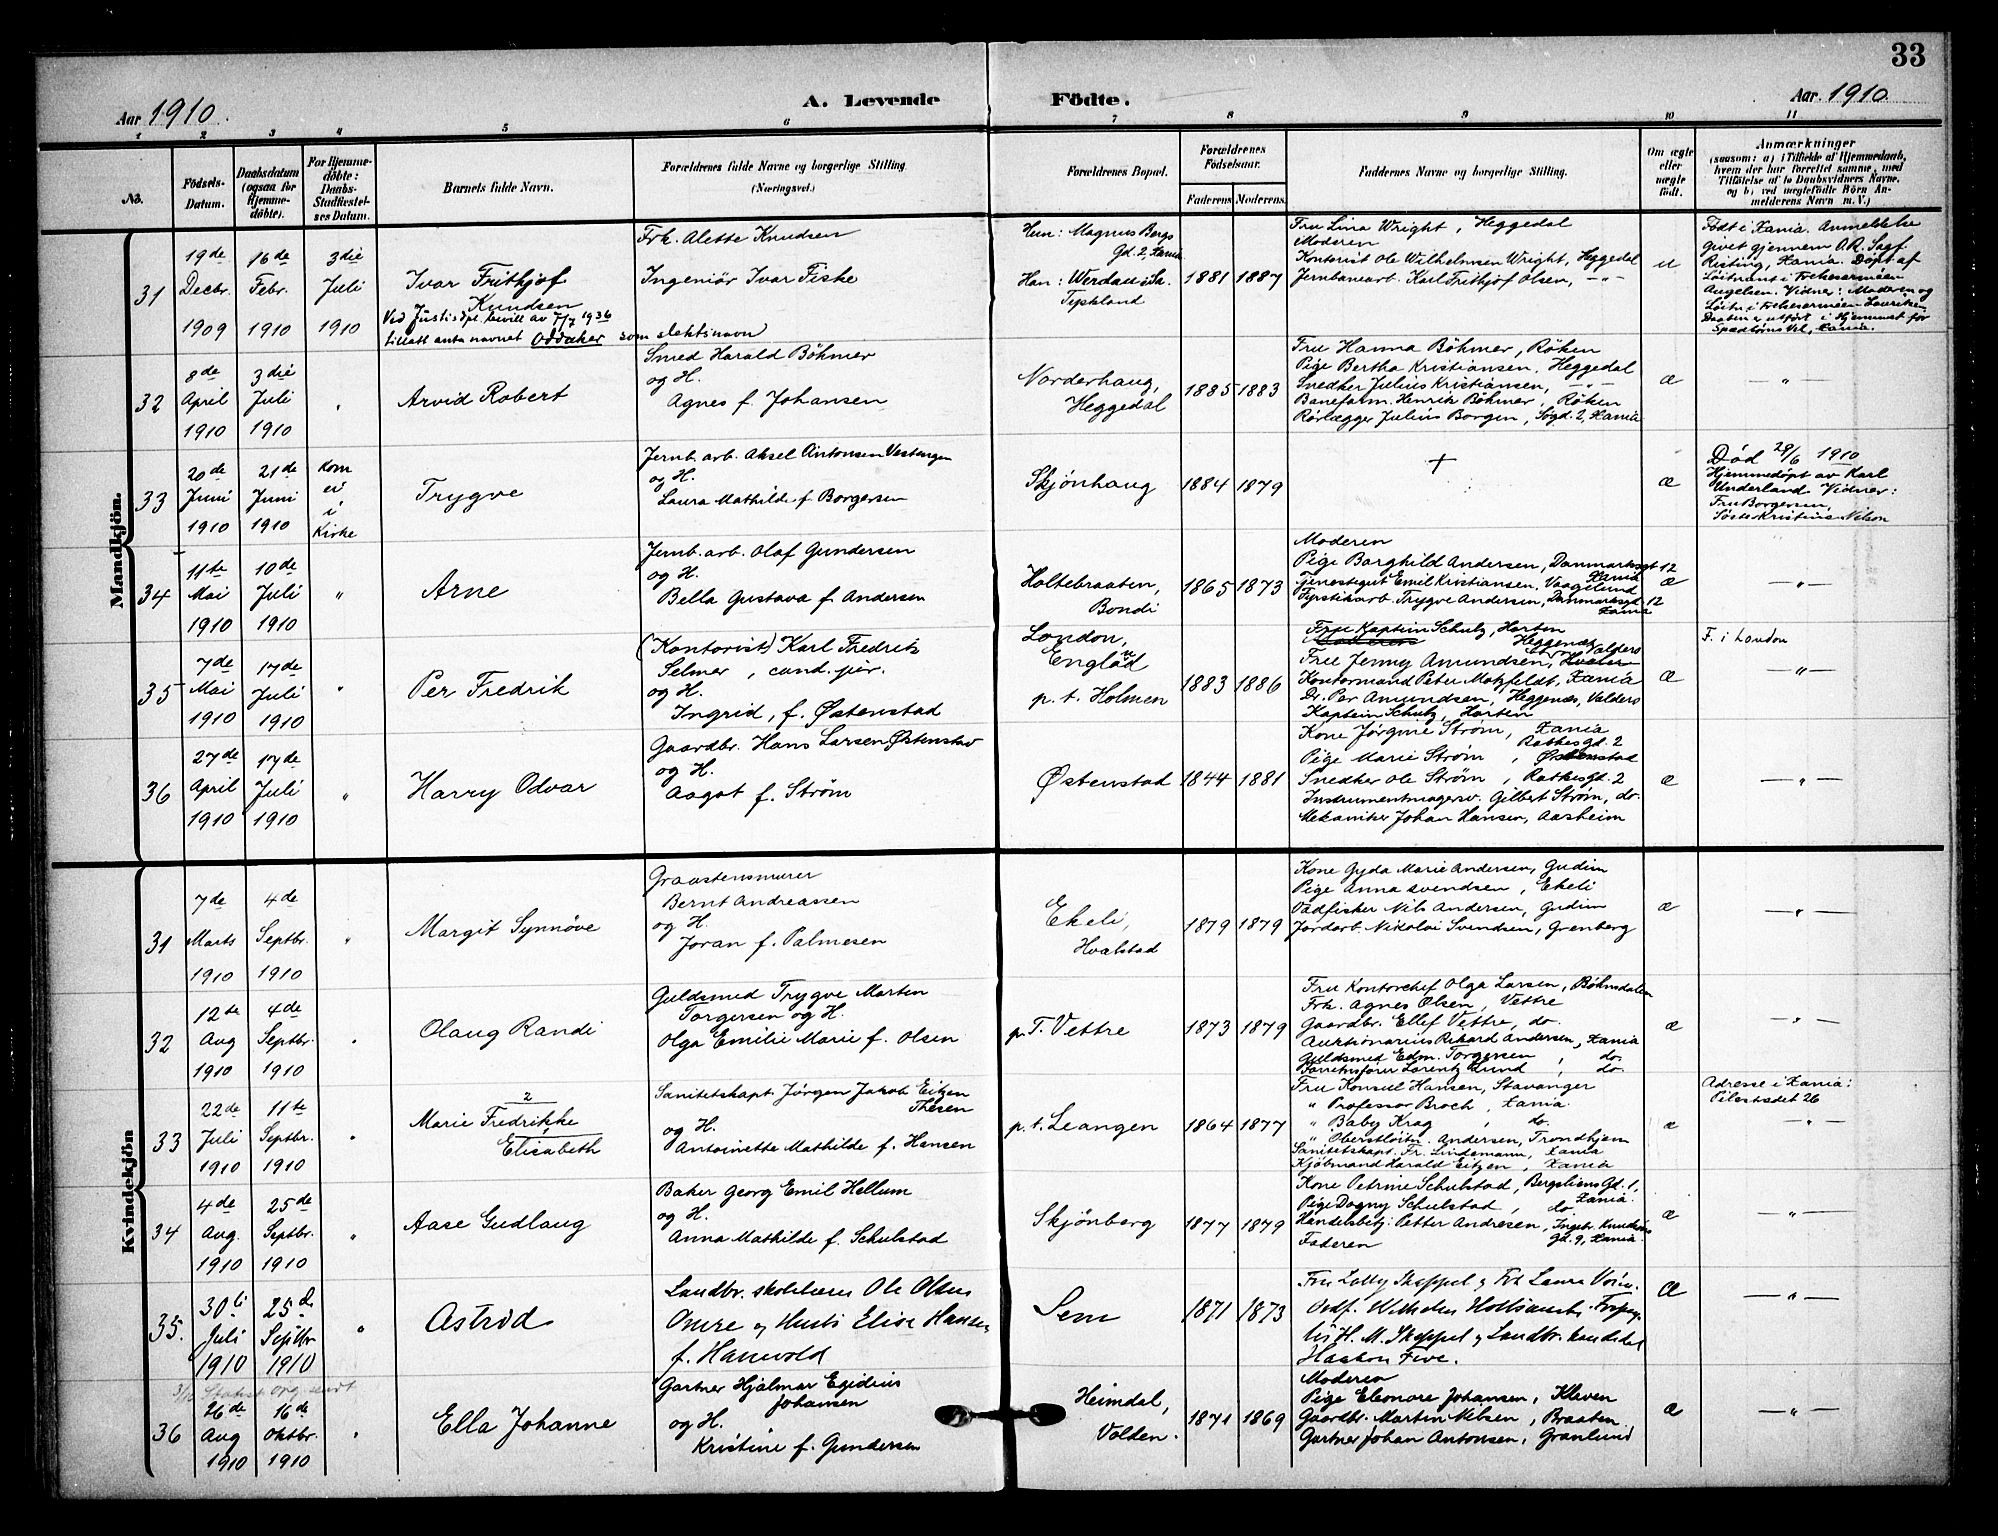 33
Aar 1910. A. Levende Födte. Aar 1910
1 2 3 4 5 6 7 8 9 10 11
No.
Födsels-
Datum.
Daabsdatum
(ogsaa for
Hjemme-
döbte).
For Hjemme-
döbte:
Daabs-
Stadfæstel-
ses Datum.
Barnets fulde Navn.
Forældrenes fulde Navne og borgerlige Stilling
(Næringsvei.)
Forældrenes Bopæl.
Forældrenes
Födselsaar.
Faderens Moderens.
Faddernes Navne og borgerlige Stilling.
Om ægte
eller
uægte
födt.
Anmærkninger
(saasom: a) i Tilfælde af Hjemmedaab,
hvem der har forrettet samme, med
Tilföielse af to Daabsvidners Navne,
og b) ved uægtefödte Börn An-
melderens Navn m. V.)
Mandkjön.
31
19de
Decbr.
1909
16de
Febr.
1910
3die
Juli
1910
Ivar Frithjof
Knudsen
Ved Justisdpt. bevill av 7/7 1936
tillatt anta navnet Oddaker som slektsnavn
Frk. Alette Knudsen
Ingeniör Ivar Fiske
Hun: Magnus Bergs
Gd. 2, Xania
Han: Werdau i Sa.
Tyskland
1881 1887
Fru Lina Wright, Heggedal
Moderen
Kontorist Ole Wilhelmsen Wright, Heggedal
Jernbanearb. Karl Frithjof Olsen, -"-
u
Født i Xania. Anmeldelse
givet gjennem O.R. Sagf.
Risting, Xania. Döpt af
Löitnant i Frelsesarméen
Augelsen. Vidner: Moderen og
Löitn. i Frelsesarméen
Daaben er utført i Hjemmet for
Spædbørns Vel, Xania.
32
8de
April
1910
3die
Juli
1910
"
Arvid Robert
Smed Harald Böhmer
og H.
Agnes f. Johansen
Norderhaug,
Heggedal
1885 1883
Fru Hanna Böhmer, Röken
Pige Bertha Kristiansen, Heggedal
Snedker Julius Kristiansen, -"-
Baneform. Henrik Böhmer, Röken
Rörlægger Julius Borgen, Søgd. 2, Xania
æ
-"-
33
20de
Juni
1910
21de
Juni
1910
Kom
ei
i
Kirke
Trygve
Jernb. arb. Aksel Antonsen Vestengen
og H.
Laura Mathilde f. Borgersen
Skjönhaug
1884 1879
+
æ
Död 28/6 1910
Hjemmedöpt av Karl
Underland Vidner:
Fru Borgersen,
Söster Kristine Nilson
34
11te
Mai
1910
10de
Juli
1910
"
Arne
Jernb. arb. Olaf Gundersen
og H.
Bella Gustava f. Andersen
Holtebraaten,
Bondi
1865 1873
Moderen
Pige Borghild Andersen, Danmarksgt 12
Xania
Tjenestegut Emil Kristiansen, Vaagelund
Trygve Andersen, Danmarksgd. 12
Xania
æ
-"-
35
7de
Mai
1910
17de
Juli
1910
"
Per Fredrik
(Kontorist) Karl Fredrik
Selmer, cand. jur.
og H.
Ingrid, f. Østenstad
London,
England
p. t. Holmen
1883 1886
Fru Kaptein Schulz, Horten
Heggenæs, Valders
Fru Jenny Amundsen,
Kontormand Peter Motzfeldt, Xania
Dr. Per Amundsen, Heggenæs, Valders
Kaptein Schulz, Horten
æ
F. i London
"
36
27de
April
1910
17de
Juli
1910
"
Harry Odvar
Gaardbr. Hans Larsen Østenstad
og H.
Aagot f. Ström
Østenstad
1844 1881
Kone Jörgine Ström, Xania
Ratkesgd. 2
Pige Marie Ström, Østenstad
Snedker Ole Ström, Ratkesgd. 2
Instrumentmagersv. Gilbert Ström, do.
Mekaniker Johan Hansen, Aasheim
æ
-"-
Kvindekjön
31
7de
Marts
1910
4de
Septbr.
1910
"
Margit Synnöve
Graastensmurer
Bernt Andreassen
og H.
Joran f. Palmesen
Ekeli,
Hvalstad
1879 1879
Kone Gyda Marie Andersen, Gudim
Pige Anna Svendsen, Ekeli
Vadfisker Nils Andersen, Gudim
Jordarb. Nikolai Svendsen, Grenberg
æ
-"-
32
12te
Aug
1910
4de
Septbr.
1910
"
Olaug Randi
Guldsmed Trygve Morten
Torgersen og H.
Olga Emilie Marie f. Olsen
p. T. Vettre
1873 1879
Fru Kontorchef Olga Larsen, Böhmdalen
Frk. Agnes Olsen, Vettre
Gaardbr. Ellef Vettre, do.
Auktionarius Rikard Andersen, Xania
Guldsmed Edm. Torgersen, do.
Lorentz Lund, do.
æ
-"-
33
22de
Juli
1910
11te
Septbr.
1910
"
2
Marie Fredrikke
1
Elisabeth
Sanitetskapt. Jörgen Jakob Eitzen
Thesen
og H.
Antoinette Mathilde f. Hansen
p. t. Leangen
1864 1877
Fru Konsul Hansen, Stavanger
" Professor Broch, Xania.
" Baby Krag, do.
" Oberstløitn. Andersen, Trondhjem
Sanitetskapt. Fr. Lindemann, Xania
Kjöbmand Harald Eitzen, Xania
æ
Adresse i Xania:
Pilestrædet 26
-"-
34
4de
Aug.
1910
25de
Septbr.
1910
"
Aase Gudlaug
Baker Georg Emil Hellum
og H.
Anna Mathilde f. Schulstad
Skjönberg
1877 1879
Kone Petrine Schulstad, Bergsliens Gd. 1,
Xania.
Pige Dagny Schulstad, do
Handelsbetj. Petter Andresen, Ingebr. Knudsøns
Gd. 9, Xania.
Faderen
æ
-"-
35.
30te
Juli
1910
25de
Septbr
1910
"
Astrid
Landbr. skolelærer Ole Olsen
Omre og Hustr Elise Hansen
f. Hanevold
Sem
1871 1873
Fru Lolly Skappel og Frk Laura Voim.
Ovdf. Wilhelm Holtsmark.
H. M. Skappel og Landbr. kandidat
Haakon Five.
Æ
-"-
36
26de
Aug
1910
16de
Oktbr.
1910
"
Ella Johanne
Gartner Hjalmar Egidius
Johansen
og H.
Kristine f. Gundersen
Heimdal,
Volden.
1871 1869
Moderen
Pige Eleonore Johansen, Kleven
Gaardbr. Martin Nilsen, Braaten
Gartner Johan Antonsen, Granlund
æ
-"-